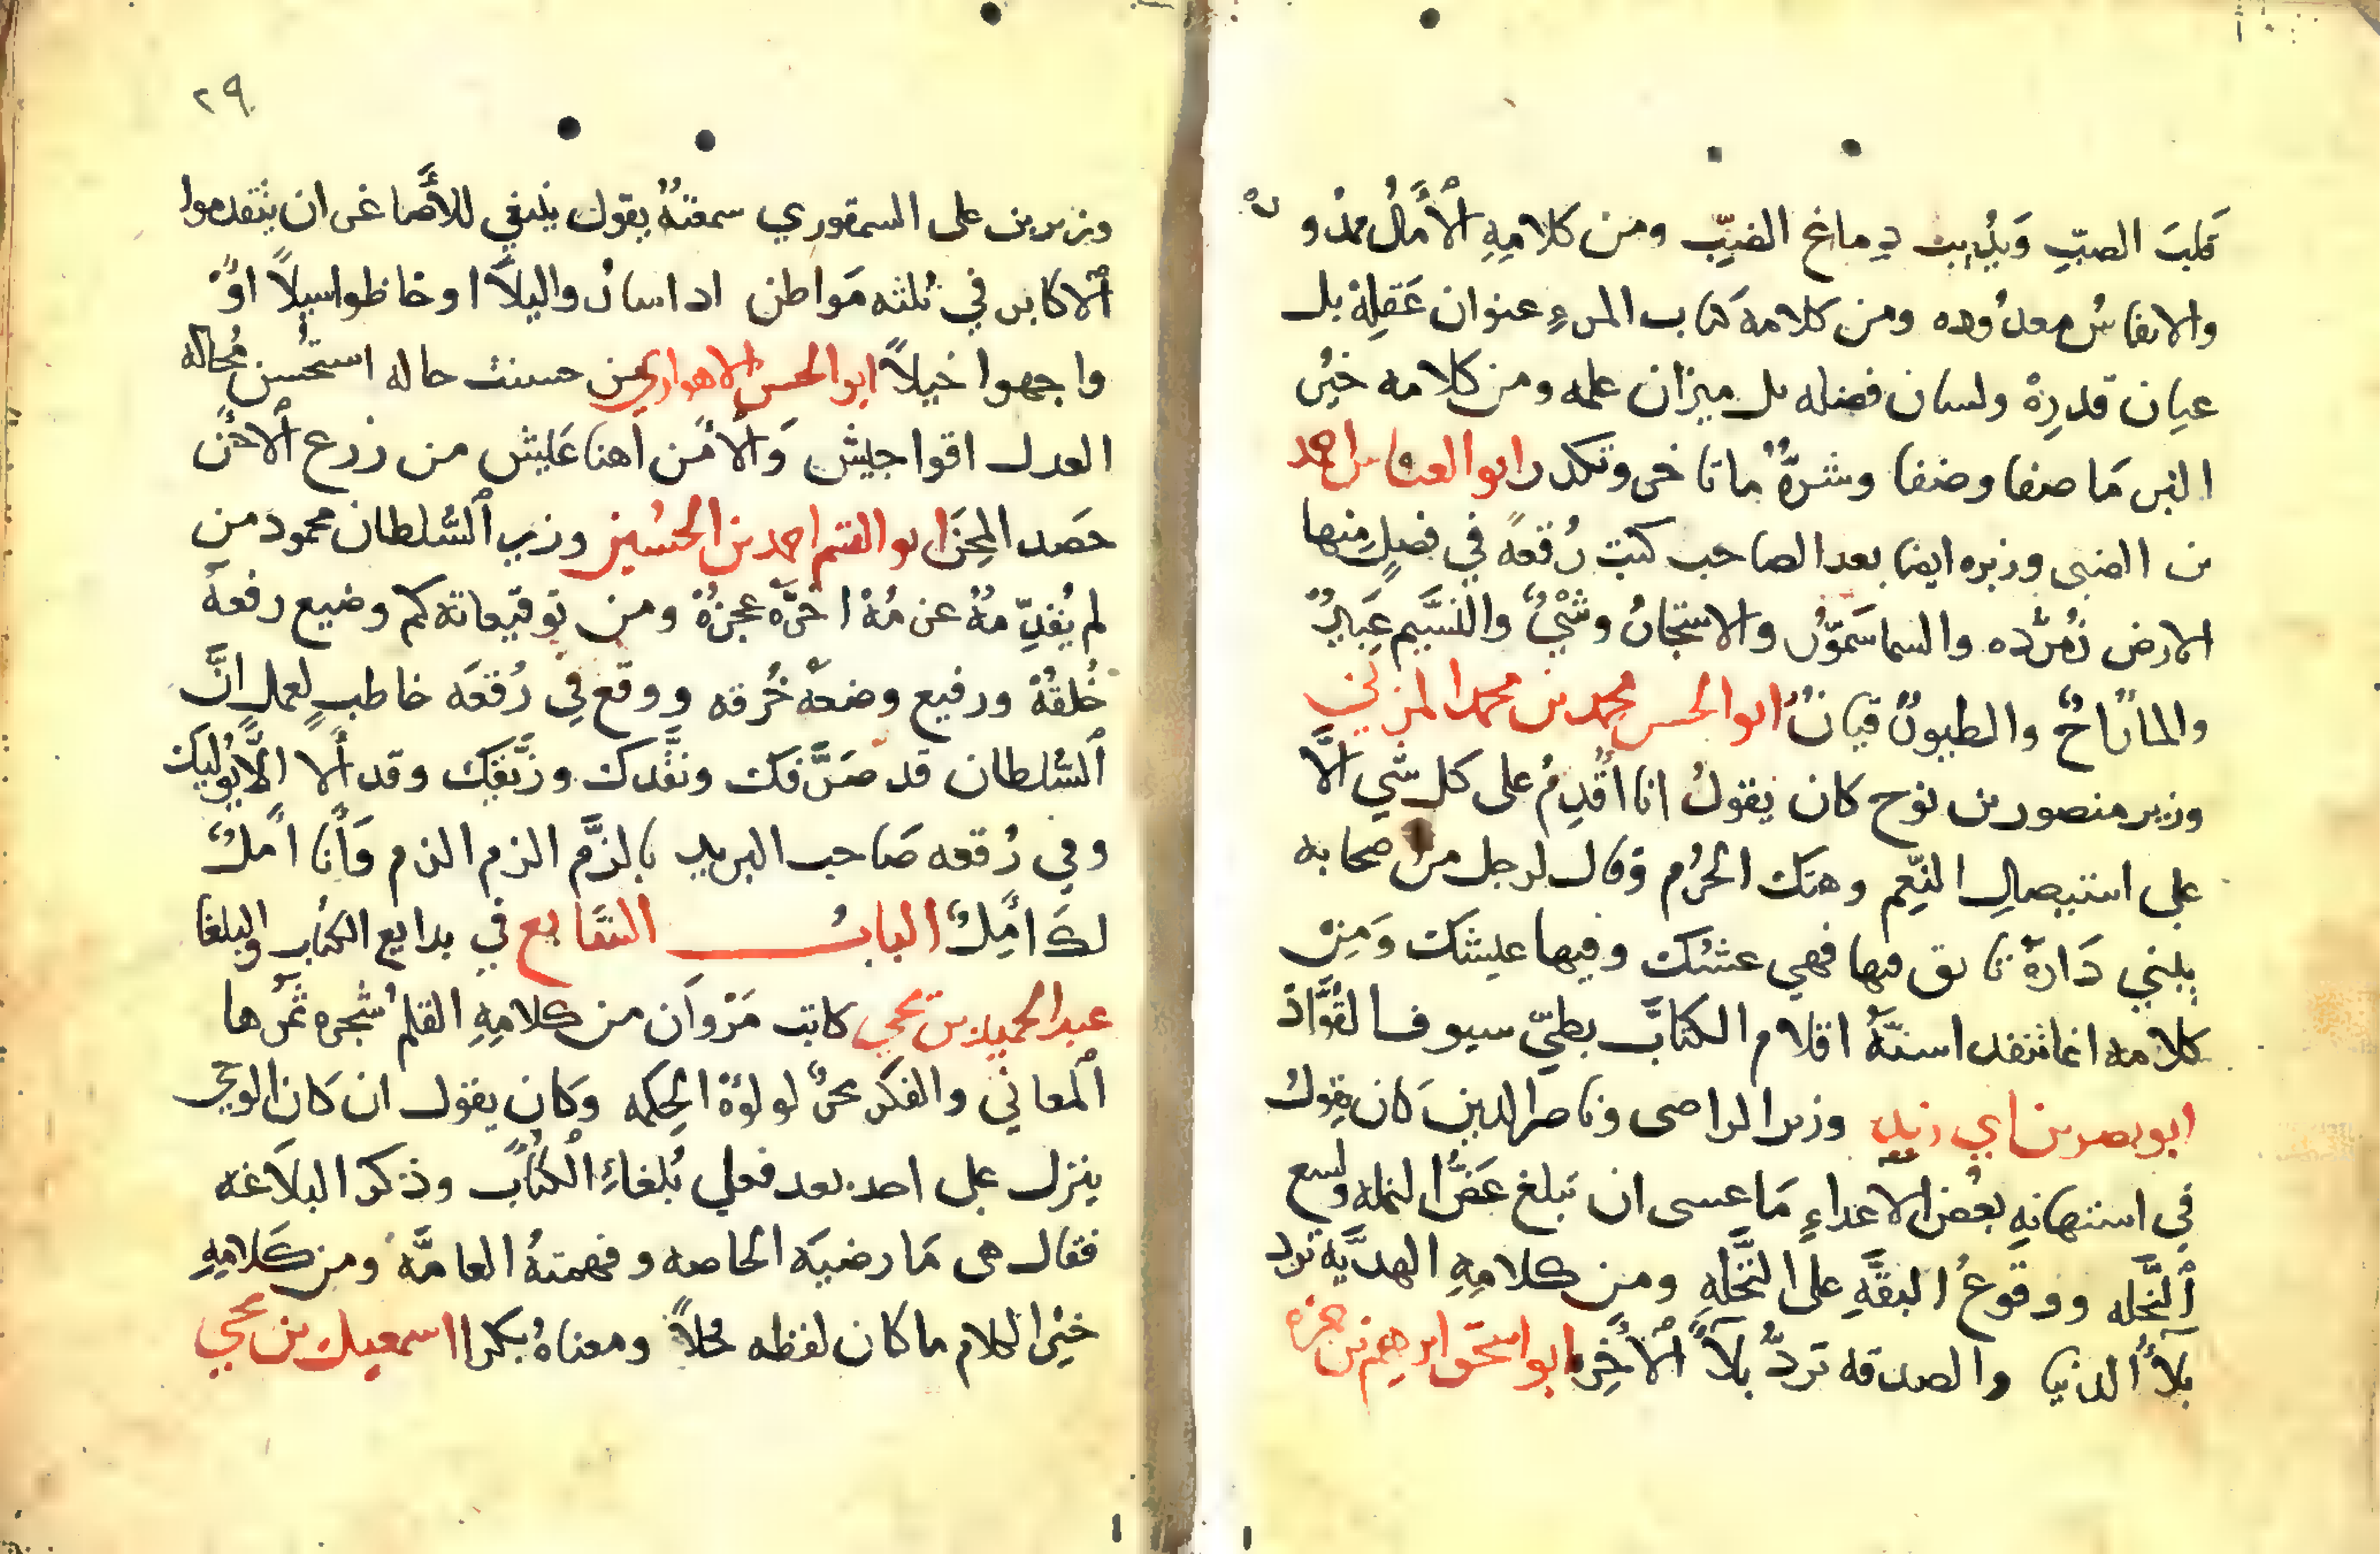 قلبَ الصبّ وَيُذهبت دِماغ الضبّ ومن كلامِهِ الْأَمالُ ممدُودة
والانفاسُ معدُوده ومن كلامه كتاب المرءِ عنوان عَقلِهْ بل
عيان قدرِهْ ولسان فضله بل ميزان علمه ومن كلامه خيْر
البر مَا صفا وضفا وشرّهُ ما تاخر وتكدر ابو العباس احمد
بن الضبى وزيره ايضا بعد الصاحب كتبَ رُقعةً في فصلٍ منها
الارض زُمرّده والسما سَموّر والاشجانُ وشْيٌ والنسَيم عَبيرٌ
والماءُ راحٌ والطيورُ قيانٌ ابو الحسن محمد بن محمد المزني
وزير منصور بن نوح كان يقولُ انا اُقدِمُ على كل شي الَّا
على استيصالِ النِعِم وهتك الحُرُم وقال لرجل من صحابه
يبني دَارهُ تانق فيها فهي عشّك وفيها عيشك وَمِن
كلامه انما تنفد اسنّةُ اقلام الكتابّ بطيّ سيوف القوّاد
ابو نصر بن ابي زيد وزير الراضى وناصر الدين كان يقولُ
في استهانهِ بعْض الاعداءِ مَا عسى ان تبلغ عَضُّ النمله ولسع
اَلنَّحله ووقوعُ البقَّهِ على النَّخلهِ ومن كلامِهِ الهدَّيه تردّ
بلآءً الدنيا والصدقه تردُّ بلآءً الأخِره ابو اسحَق ابرهيم بن حمزه
٢٩
وزير بن على السمقوري سمعتهُ يقول ينبغي للأَصاغر ان يتقدموا
اَلاكابر في ثلثه مَواطن اذا ساروا ليلاً او خاظوا سيلاً اوْ
واجهوا خيلاً ابو الحسن الاهوازي من حسنت حاله استحْسن مُحاله
العدل اقوا جيش وَالأمْن اَهنا عَيش من زرع الاحَن
حَصد المِحَن ابو القسم احمد بن الحسَين وزير اَلسُّلطان محمود من
لم يُقدِّمهُ عزمُهْ اخرّه عجزُهْ ومن توقيعاته كم وضيع رفعهُ
خُلقهُ ورفيع وضعهُ خُرقه ووقع فِي رُقعَه خاطبٍ لعمل انَّ
اَلسُّلطان قد صَرَّفك ونقَّدك وزيَّفك وقد ألا اَلَّا يوُليَك
وفي رُقعه صَاحب البريد بالرَّم الزم الزم فَأنا اَملٌ
لكَ اَمِلٌ البابُ السَّابع في بدايع الكتاب والبلغا
عبد الحميد بن يحيى كاتب مَرْوَان من كلامِهِ القلم شجره ثمرَها
اَلمعاني والفكر بحرٌ لولؤهْ الحِكمه وكان يقول ان كان الوحي
ينزل على احد بعد فعلى بُلغاءِ الكُتابّ وذكر البلاَغه
فقال هى مَا رضيَه الخاصه وفهمتهُ العامَّه ومن كَلامِهِ
خيْر الكلام ما كان لفظه فحلاً ومعناهُ بكرا اسمعيل بن يحيى